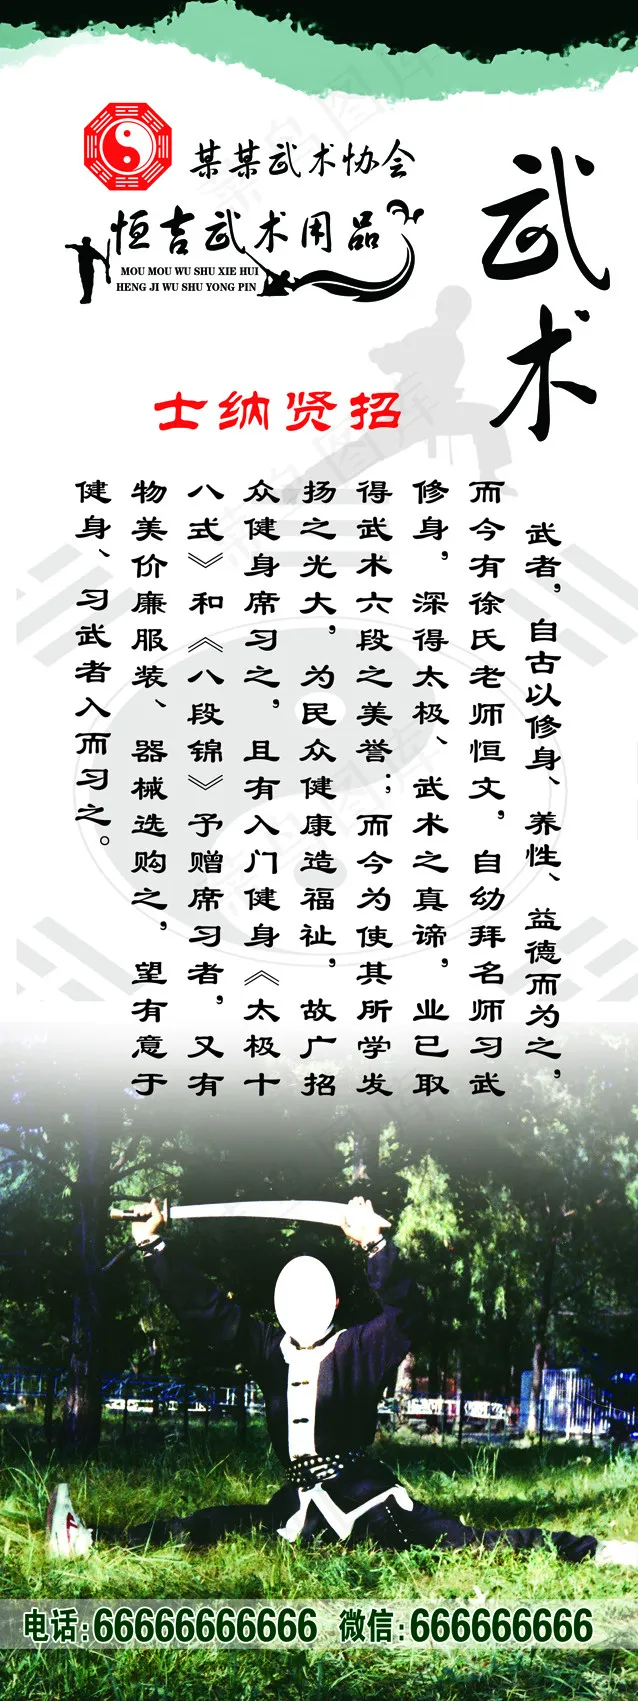 某某武术协会
恒吉武术用品
MOU MOU WU SHU XIE HUI
HENG JI WU SHU YONG PIN
武术
士纳贤招
武者，自古以修身、养性、益德而为之，
而今有徐氏老师恒文，自幼拜名师习武
修身，深得太极、武术之真谛，业已取
得武术六段之美誉；而今为使其所学发
扬之光大，为民众健康造福祉，故广招
众健身席习之，且有入门健身《太极十
八式》和《八段锦》予赠席习者，又有
物美价廉服装、器械选购之，望有意于
健身、习武者入而习之。
电话:66666666666 微信:666666666